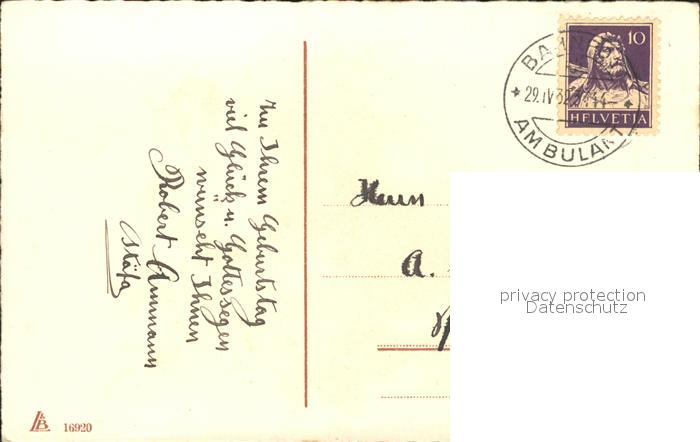 Zu Ihrem Geburtstag
viel Glück u. Gottessegen
wünscht Ihnen
Robert Ammann
Stäfa
10
HELVETIA
29.IV.32
AMBULANT
Herrn
A.
privacy protection
Datenschutz
16920